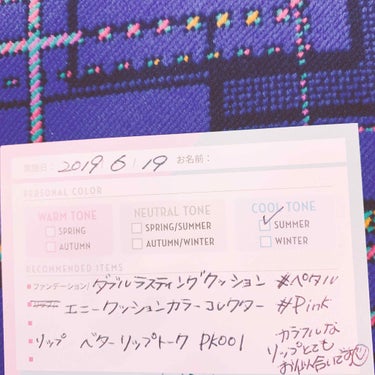 実施日： 2019. 6 / 19 お名前：
PERSONAL COLOR
WARM TONE
SPRING
AUTUMN
NEUTRAL TONE
SPRING/SUMMER
AUTUMN/WINTER
COOL TONE
SUMMER
WINTER
RECOMMENDED ITEMS
ファンデーション/ ダブルラスティングクッション #ペタル
エニークッションカラーコレクター #Pink
リップ ベターリップトーク PK001
カラフルな
リップとても
お似合いです